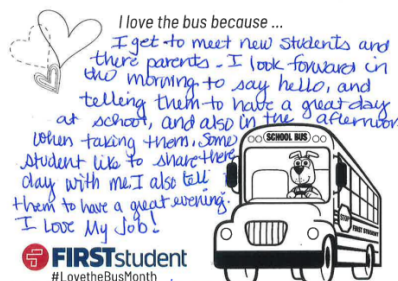 I love the bus because ...
I get to meet new students and
there parents. I look forward in
the morning to say hello, and
telling them to have a great day
at school, and also in the afternoon
when taking them. Some
student like to share there
day with me. I also tell
them to have a great evening.
I Love My Job!
SCHOOL BUS
STOP
FIRST STUDENT
FIRSTstudent
#LovetheBusMonth